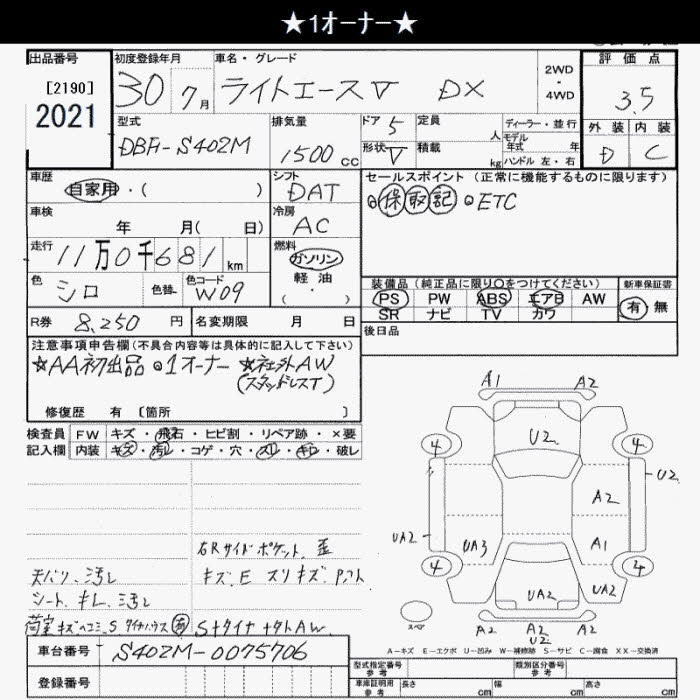 ★1オーナー★
出品番号 初度登録年月 車名・グレード 評価点
[2190]
2021
30 7月 ライトエースV DX
2WD
・
4WD
3.5
型式 排気量 ドア 5 定員 人 ディーラー・並行
外装 内装
DBF-S402M 1500cc
形状 V 積載 kg モデル年式 年
ハンドル 左・右
D C
車歴 シフト セールスポイント (正常に機能するものに限ります)
自家用・( ) DAT
保 取 記 ETC
車検 年 月( 日) 冷房 AC
走行 11万0千681km 燃料
ガソリン
軽油
( ・ )
色 シロ 色替 色コード W09
装備品 (純正品に限り○をつけてください) 新車保証書
PS PW ABS エアB AW 有・無
SR ナビ TV カワ
R券 8,250円 名変期限 月 日
後日品
注意事項申告欄(不具合内容等は具体的に記入して下さい)
☆AA初出品 1オーナー ☆社外AW
(スタッドレスT)
修復歴 有 〔箇所 〕
検査員 FW キズ・飛石・ヒビ割・リペア跡・×要
記入欄 内装 キズ・汚レ・コゲ・穴・スレ・キレ・破レ
A1 A2
U2
4 4
U2
A2
UA2 UA3 A1
4 4
UA2 UA2
A2 A2 A2
U2
スペア
右Rサイドポケット、歪
天バリ、汚レ キズ、E スリキズ
シート、キレ、汚レ
荷室キズ ヘコミ、S
車台番号 S402M-0075706
登録番号
A－キズ E－エクボ U－凹み W－補修跡 S－サビ C－腐食 XX－交換済
型式指定番号 参考 類別区分番号 参考
車庫証明用 参考 長さ cm 幅 cm 高さ cm